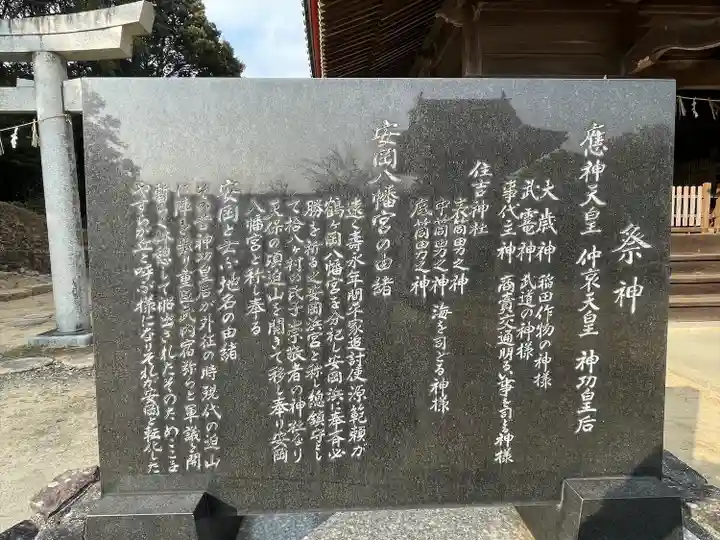 祭神
應神天皇 仲哀天皇 神功皇后
大歳神 稲田作物の神様
武雷神 武道の神様
事代主神 商賣交通明るい事を司る神様
住吉神社
表筒男之神
中筒男之神 海を司どる神様
底筒男之神
安岡八幡宮の由緒
遠く壽永年間平家追討使源範頼が
鶴ヶ岡八幡宮を分祀し安岡浜に奉斉必
勝を祈る之安岡浜宮と称し總鎮守とし
て拾八ヶ村の氏子崇敬者の神社なり
天保の頃迫山を開きて移し奉り安岡
八幡宮と称し奉る
安岡と云ふ地名の由緒
その昔神功皇后が外征の時現代の迫山
に陣を張り重臣武内宿弥らと軍議を開
暫らく休憩して出されたそのためここを
やすらか丘と呼ぶ様になりそれが安岡と転化した